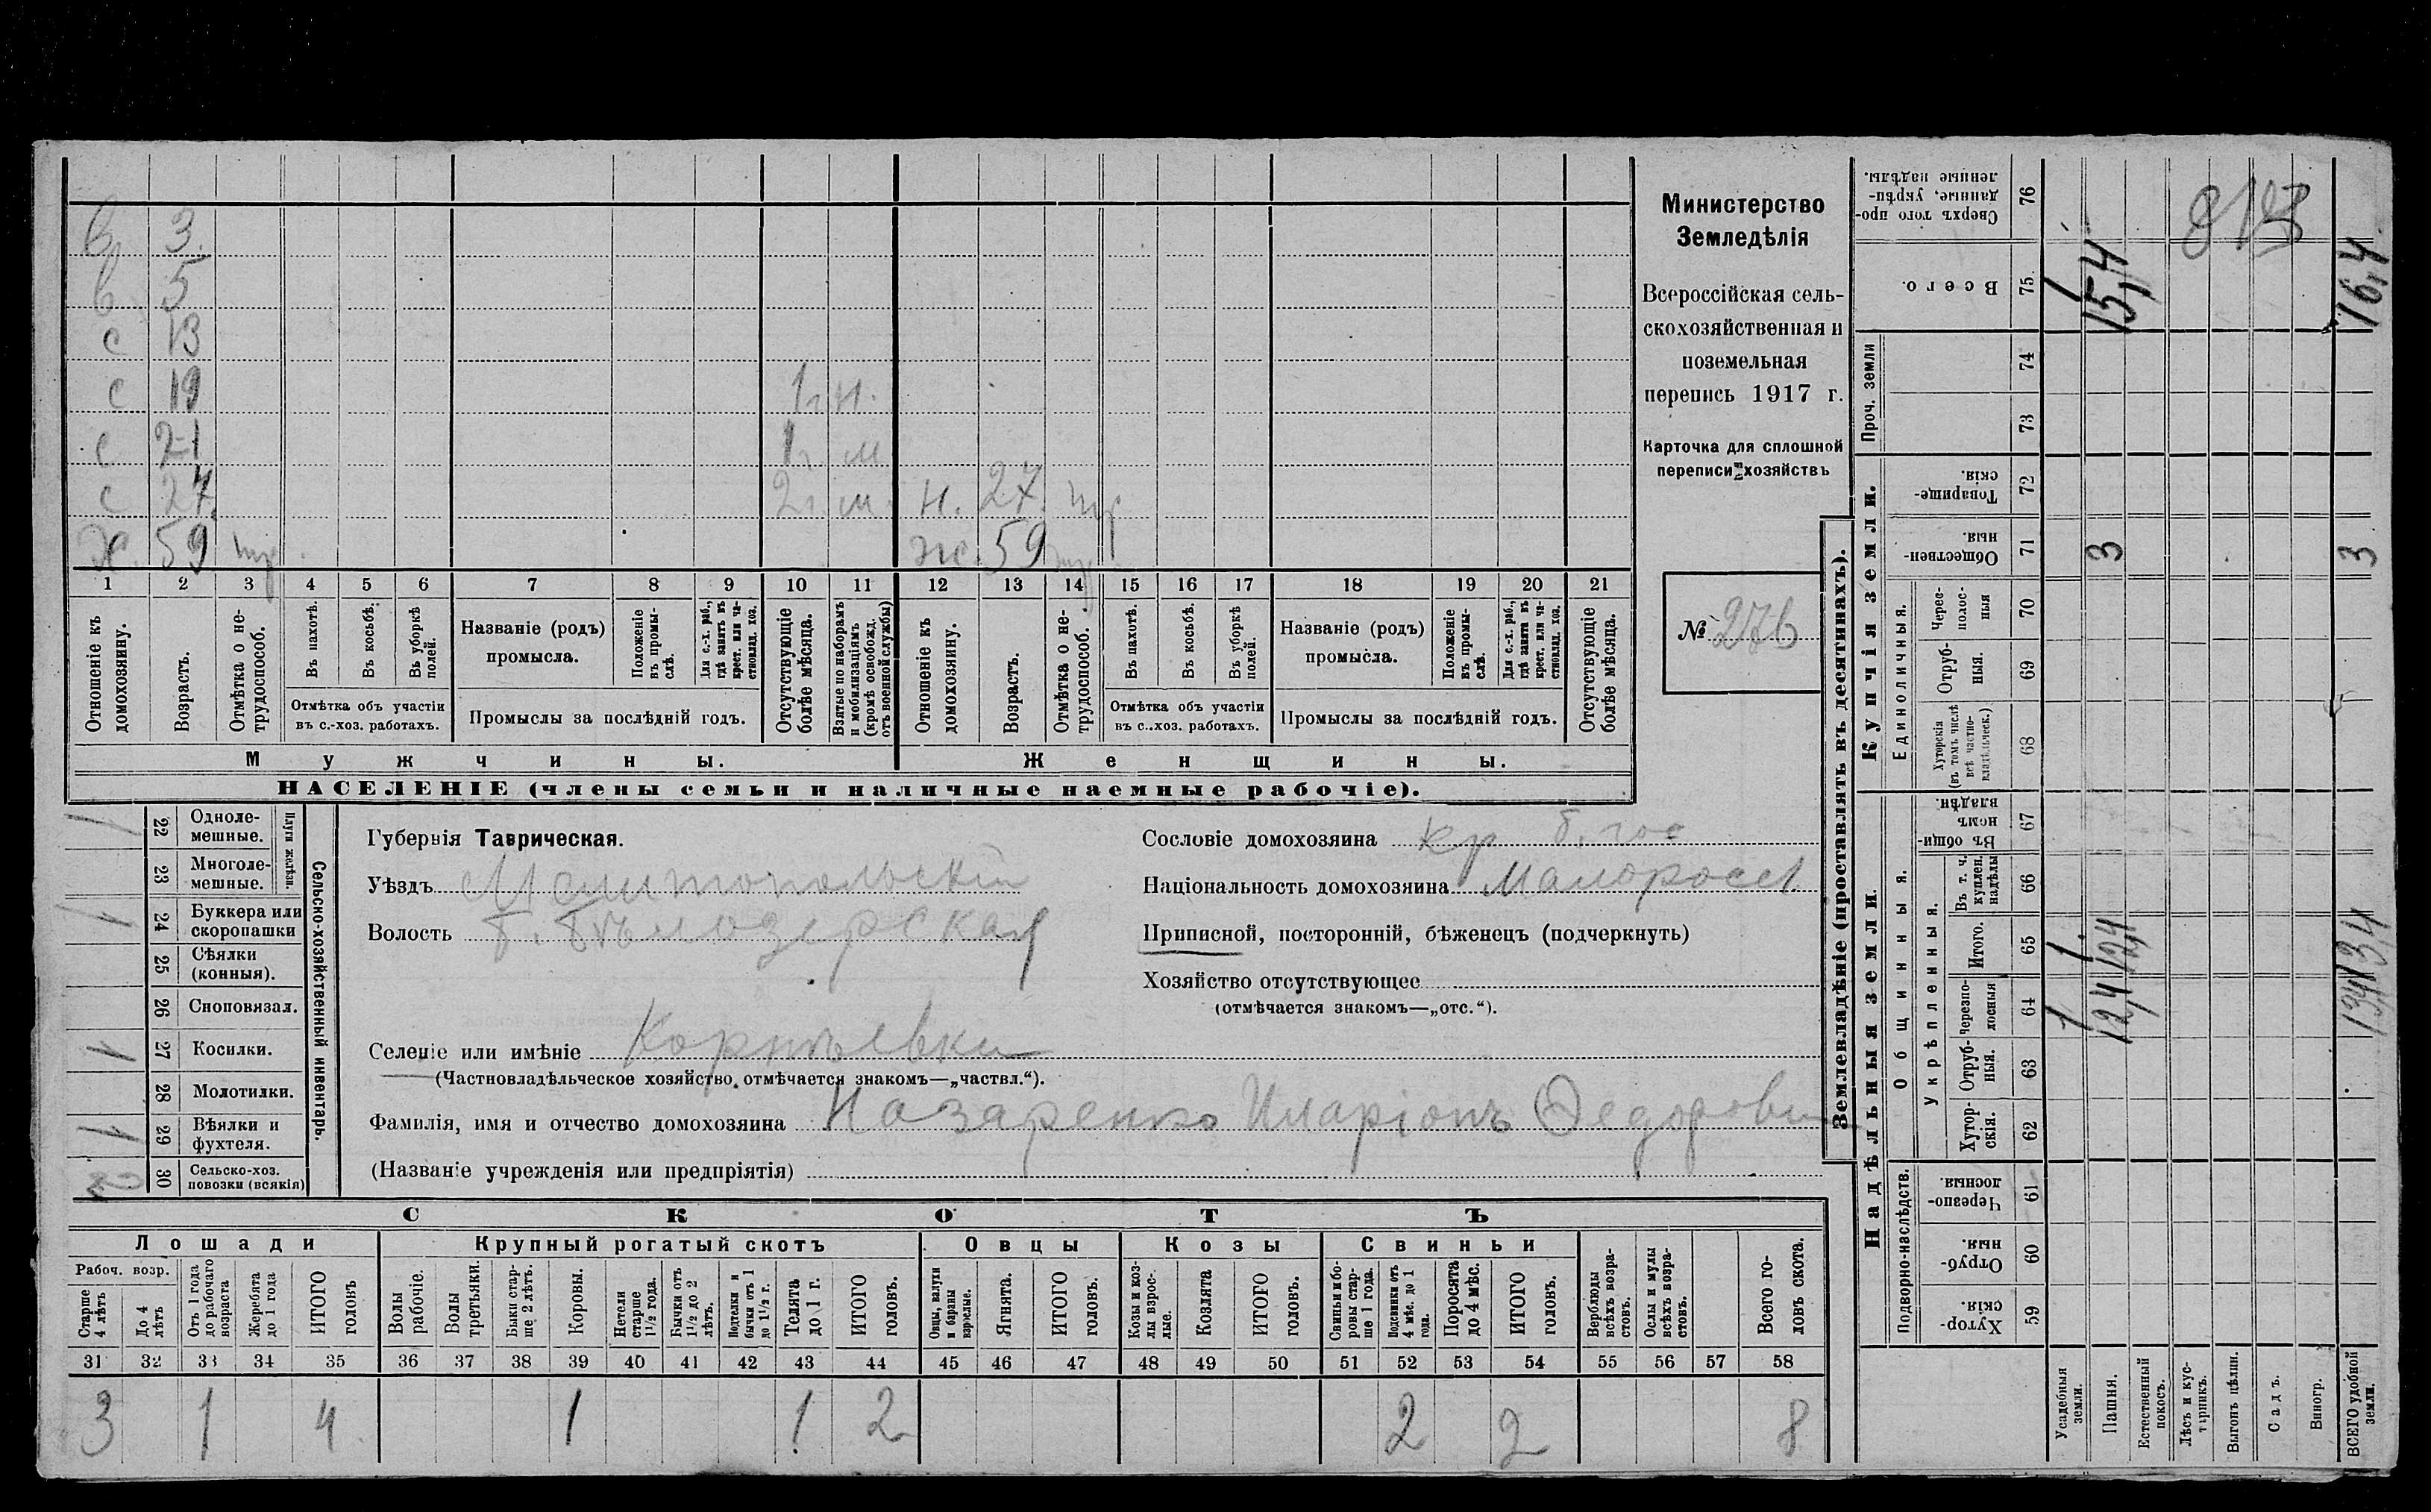 в 3.
в 5
с 13
с 19 1 г. н.
с 21 1 г. м
с 27. 2 г. м. н. 27. нр
х. 59 нр. ж. 59 нр
1 2 3 4 5 6 7 8 9 10 11 12 13 14 15 16 17 18 19 20 21
Отношеніе къ домохозяину.
Возрастъ.
Отмѣтка о не-трудоспособ.
Въ пахотѣ.
Въ косьбѣ.
Въ уборкѣ полей.
Отмѣтка объ участіи
въ с.-хоз. работахъ.
Названіе (родъ)
промысла.
Положеніе въ промы-слѣ.
Для с.-х. раб., гдѣ занятъ въ крест. или ча-стновлад. хоз.
Промыслы за послѣдній годъ.
Отсутствующіе болѣе мѣсяца.
Взятые по наборамъ и мобилизаціямъ (кромѣ освобожд. отъ военной службы)
Отношеніе къ домохозяину.
Возрастъ.
Отмѣтка о не-трудоспособ.
Въ пахотѣ.
Въ косьбѣ.
Въ уборкѣ полей.
Отмѣтка объ участіи
въ с..хоз. работахъ.
Названіе (родъ)
промысла.
Положеніе въ промы-слѣ.
Для с.-х. раб., гдѣ занята въ крест. или ча-стновлад. хоз.
Промыслы за послѣдній годъ.
Отсутствующіе болѣе мѣсяца.
Мужчины.
Женщины.
НАСЕЛЕНІЕ (члены семьи и наличные наемные рабочіе).
Министерство
Земледѣлія
Всероссійская сель-
скохозяйственная и
поземельная
перепись 1917 г.
Карточка для сплошной
переписи хозяйствъ
№ 276
1 22 Одноле-мешные.
23 Многоле-мешные.
Плуги желѣзн.
1 24 Буккера или скоропашки
25 Сѣялки (конныя).
26 Сноповязал.
1 27 Косилки.
28 Молотилки.
1 29 Вѣялки и фухтеля.
2 30 Сельско-хоз. повозки (всякія)
Сельско-хозяйственный инвентарь.
Губернія Таврическая.
Уѣздъ Мелитопольскій
Волость Б. Бѣлозерская
Селеніе или имѣніе Корнѣевка
(Частновладѣльческое хозяйство отмѣчается знакомъ—„частвл.“).
Фамилія, имя и отчество домохозяина Назаренко Иларіонъ Ѳедорови
(Названіе учрежденія или предпріятія)
Сословіе домохозяина кр б. гос
Національность домохозяина Малоросс.
Приписной, посторонній, бѣженецъ (подчеркнуть)
Хозяйство отсутствующее
(отмѣчается знакомъ—„отс.“).
СКОТЪ
Лошади
Крупный рогатый скотъ
Овцы
Козы
Свиньи
Рабоч. возр.
Старше 4 лѣтъ
До 4 лѣтъ
Отъ 1 года до рабочаго возраста
Жеребята до 1 года
ИТОГО головъ
Волы рабочіе.
Волы третьяки.
Быки стар-ше 2 лѣтъ.
Коровы.
Нетели старше 1½ года.
Бычки отъ 1½ до 2 лѣтъ.
Подтелки и бычки отъ 1 до 1½ г.
Телята до 1 г.
ИТОГО головъ.
Овцы, валухи и бараны взрослые.
Ягнята.
ИТОГО головъ.
Козы и коз-лы взрос-лые.
Козлята
ИТОГО головъ.
Свиньи и бо-ровы стар-ше 1 года.
Подсвинки отъ 4 мѣс. до 1 года.
Поросята до 4 мѣс.
ИТОГО головъ.
Верблюды всѣхъ возра-стовъ.
Ослы и мулы всѣхъ возра-стовъ.
Всего го-ловъ скота.
31 32 33 34 35 36 37 38 39 40 41 42 43 44 45 46 47 48 49 50 51 52 53 54 55 56 57 58
3 1 4 1 1 2 2 2 8
Землевладѣніе (проставлять въ десятинахъ).
Надѣльныя земли.
Купчія земли.
Проч. земли
Подворно-наслѣдств.
Общинныя.
Укрѣпленныя.
Единоличныя.
Сверхъ того про-данные, укрѣп-ленные надѣлы. 76
Всего. 75 1 15,4 16,4
74
73
Товарище-скія. 72
Обществен-ныя. 71 3 3
Черес-полос-ныя 70
Отруб-ныя. 69
Хуторскія (въ томъ числѣ всѣ частно-владѣльческ.) 68
Въ общин-номъ владѣн. 67
Въ т. ч. куплен. надѣлы 66
Итого. 65 1. 12,4 13,4
Черезпо-лосныя 64 1 12,4 13,4
Отруб-ныя. 63
Хутор-скія. 62
Черезпо-лосныя 61
Отруб-ныя. 60
Хутор-скія. 59
Усадебныя земли.
Пашня.
Естественный покосъ.
Лѣсъ и кус-тарникъ.
Выгонъ цѣлин.
Садъ.
Виногр.
ВСЕГО удобной земли.